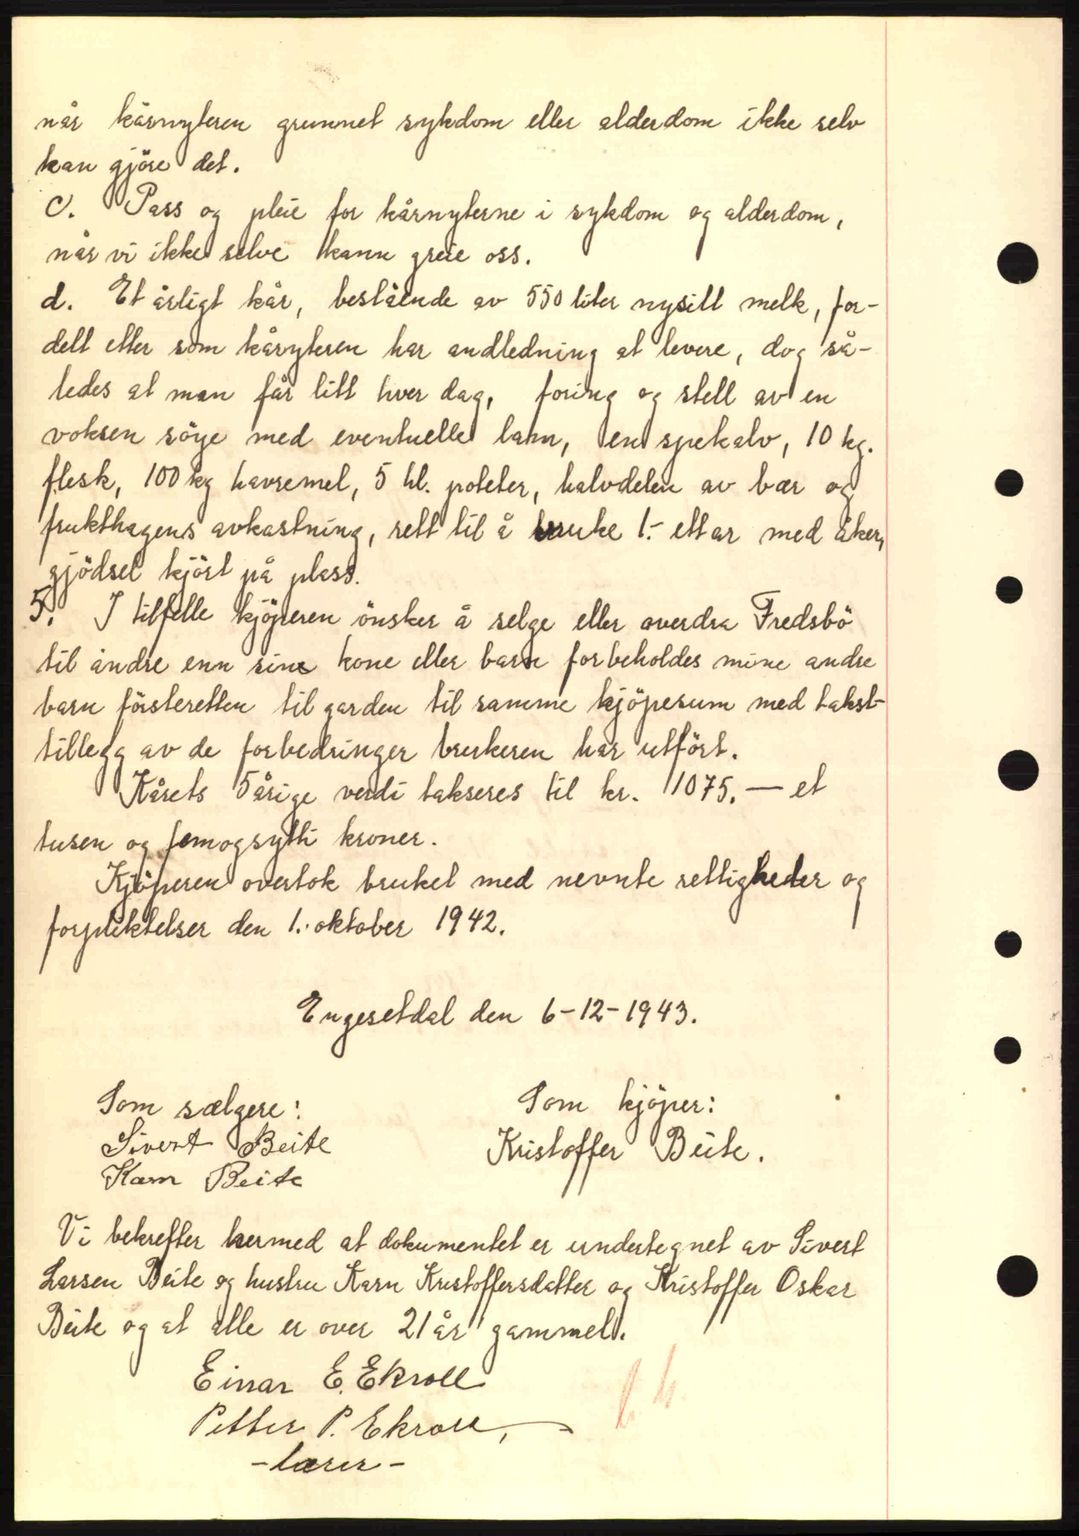 når kårnyteren grunnet sykdom eller alderdom ikke selv
kan gjöre det.
c. Pass og pleie for kårnyterne i sykdom og alderdom,
når vi ikke selve kann greie oss.
d. Et årligt kår, bestående av 550 liter nysilt melk, for-
delt etter som kåryteren har andledning at levere, dog så-
ledes at man får litt hver dag, foring og stell av en
voksen söye med eventuelle lam, en spekalv, 10 kg.
flesk, 100 kg havremel, 5 hl. poteter, halvdelen av bær og
frukthagens avkastning, rett til å bruke 1.- ett ar med åker,
gjödsel kjört på plass.
5. I tilfelle kjöperen önsker å selge eller overdra Fredsbö
til andre enn sine kone eller barn forbeholdes mine andre
barn försteretten til garden til samme kjöpesum med takst-
tillegg av de forbedringer brukeren har utfört.
Kårets 5årige verdi takseres til kr. 1075.— et
tusen og femogsytti kroner.
Kjöperen overtok bruket med nevnte rettigheder og
forpliktelser den 1. oktober 1942.
Engesetdal den 6-12-1943.
Som sælgere:
Sivert Beite
Karn Beite
Som kjöper:
Kristoffer Beite.
Vi bekrefter hermed at dokumentet er undertegnet av Sivert
Larsen Beite og hustru Karn Kristoffersdatter og Kristoffer Oskar
Beite og at alle er over 21 år gammel.
Einar E. Ekroll
Petter P. Ekroll,
-lærer-